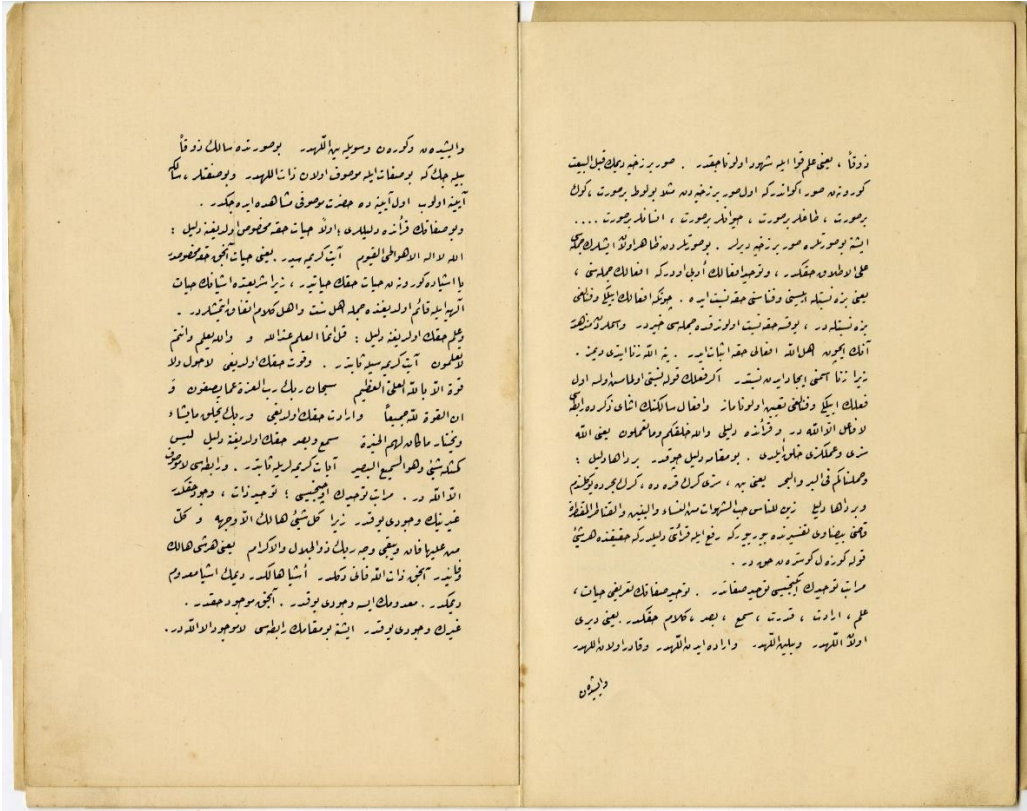 ذوقاً ، يعنى علم قوا ايله شهود اولونا جقدر . صور برزخيه ديمك قبل البيعت
كورونن صور اكواندركه اول صور برزخيه دن مثلا بولوط برصورت ، كوك
برصورت ، طاغلر برصورت ، حيوانلر برصورت ، انسانلر برصورت ....
ايشته بوصورتلره صور برزخيه ديرلر . بوصورتلردن ظاهر اولان ايشلرك جمله سى
على الاطلاق حقكدر ، وتوحيد افعالك أدبى اودركه افعالك جمله سى ،
يعنى بزه نسبتله اييسنى وفناسنى حقه نسبت ايده . چونكه افعالك ايلكى وفنالغى
بزه نسبتله در ، يوقسه حقه نسبت اولوندقده جمله سى خيردر
آنك ايچون اهل الله افعالى حقه اثبات ايدر . ينه الله زنا ايتدى ديمز .
زيرا زنا اسمنى ايجاد ايدن نسبتدر اكر فعلك قوله نسبتى اولماسن اولسه اول
فعلك ايلكى وفنالغى تعيين اولونماز وافعال سالكنك اثناى ذكرده رابطه سى
لا فاعل الا الله در وقرأنده دليلى والله خلقكم وما تعملون يعنى الله
سزى وعملكزى خلق ايلدى . بومقامه دليل چوقدر برداها دليل :
وحملناكم فى البر والبحر يعنى بن ، سزى كرك قره ده ، كرك بحرده يوكلندم
وبرداها دليل زين للناس حب الشهوات من النساء والبنين والقناطير المقنطرة
قاضى بيضاوى تفسيرنده بيوريوركه رفع ايله قرائتى دليلدركه حقيقتده هرشيئى
قوله كوزل كوسترن حق در .
مراتب توحيدك ايكنجيسى توحيد صفاتدر . توحيد صفاتك تعريفى حيات ،
علم ، ارادت ، قدرت ، سمع ، بصر ، كلام حقكدر . يعنى ديرى
اولان اللهدر وبيلن اللهدر واراده ايدن اللهدر وقادر اولان اللهدر
وايشيدن
وايشيدن وكورن وسويليين اللهدر بوصورتده سالك ذوقاً
بيله جك كه بوصفات ايله موصوف اولان ذات اللهدر وبوصفتلر ، سالكه
آيينه اولوب اول آيينه ده حضرت موصوفى مشاهده ايده جكدر .
وبوصفاتك قرأنده دليللرى ؛ اولاً حيات حقه مخصوص اولديغنه دليل :
الله لا اله الا هو الحى القيوم آيت كريمه سيدر . يعنى حيات آنجق حقه مخصوصدر
يا اشياده كورونن حيات حقك حياتيدر ، زيرا شريعتده اشيانك حيات
الهى ايله قائم اولديغنده جمله اهل سنت واهل كلام اتفاق ايتمشلردر .
وعلم حقك اولديغنه دليل : قل انما العلم عند الله و والله يعلم وانتم
لا تعلمون آيت كريمه سيله ثابتدر . وقوت حقك اولديغى لا حول ولا
قوة الا بالله العلى العظيم سبحان ربك رب العزة عما يصفون وَ
ان القوة لله جميعاً وارادت حقك اولديغى وربك يخلق ما يشاء
ويختار ما كان لهم الخيرة سمع وبصر حقك اولديغنه دليل ليس
كمثله شئ وهو السميع البصير آيات كريمه لريله ثابتدر . ورابطه سى لا موصوف
الا الله در . مراتب توحيدك اوچنجيسى ؛ توحيد ذات ، وجود حقكدر
غيرينك وجودى يوقدر زيرا كل شئ هالك الا وجهه و كل
من عليها فان ويبقى وجه ربك ذو الجلال والاكرام يعنى هرشى هالك
وفانيدر آنجق ذات الله فانى دكلدر أشيا هالكدر ديمك اشيا معدوم
ديمكدر . معدومك ايسه وجودى يوقدر . آنجق موجود حقدر .
غيرك وجودى يوقدر ايشته بومقامك رابطه سى لا موجود الا الله در .